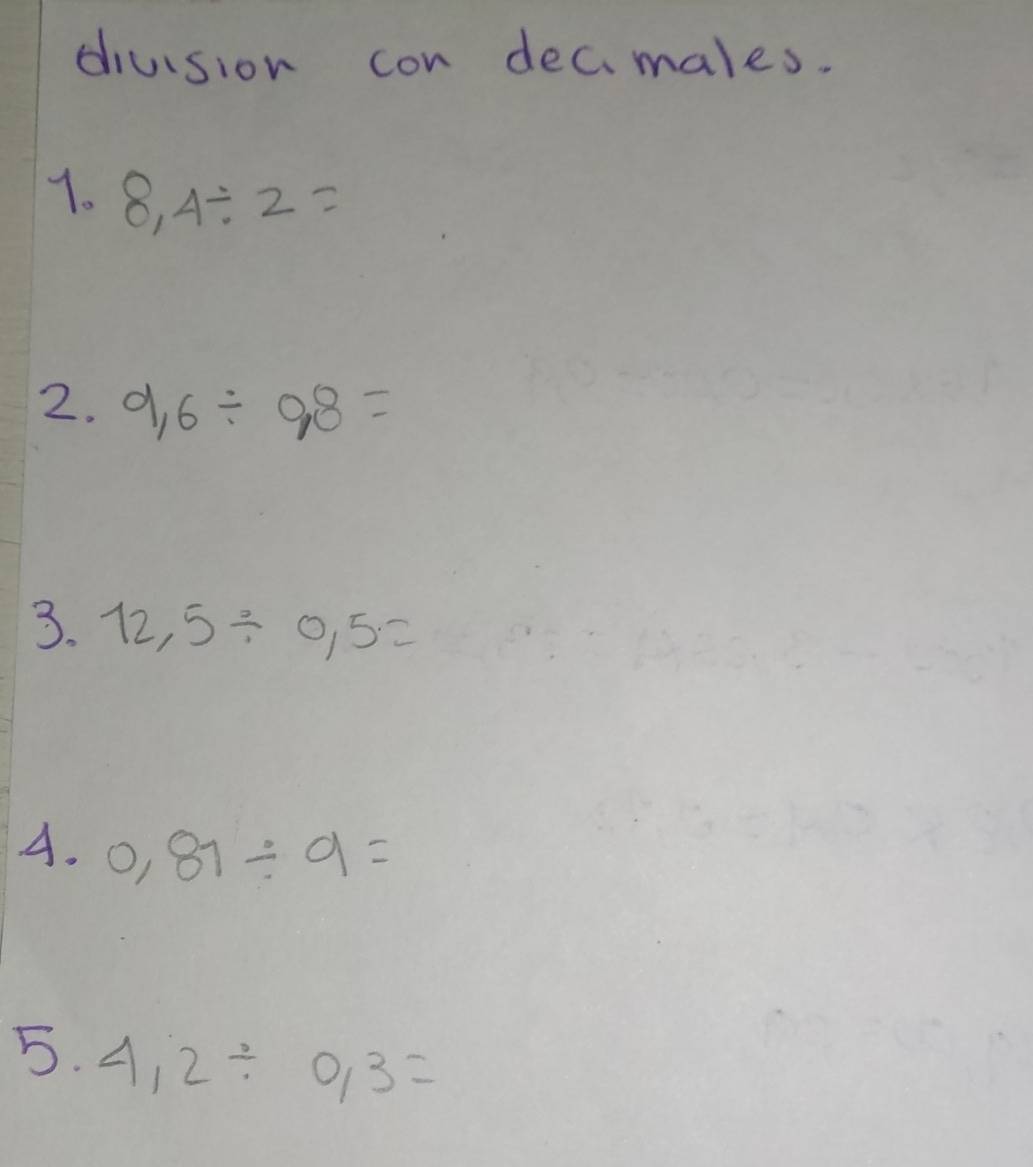 division con decimales.
1. 8,4 ÷ 2 =
2. 9,6 ÷ 0,8 =
3. 12,5 ÷ 0,5 =
4. 0,81 ÷ 9 =
5. 4,2 ÷ 0,3 =